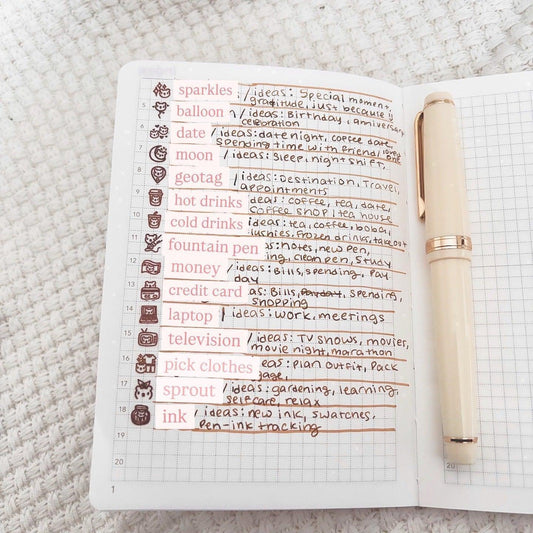 sparkles / ideas: Special moment,
gratitude, just because
balloon / ideas: Birthday, anniversary
celebration
date / ideas: date night, coffee date,
Spending time with friend, loved one
moon / ideas: Sleep, night shift,
geotag / ideas: Destination, Travel,
appointments
hot drinks ideas: coffee, tea, date,
coffee shop, tea house
cold drinks ideas: tea, coffee, boba,
slushies, frozen drinks, take out
fountain pen as: notes, new pen,
ing, clean pen, study
money / ideas: Bills, spending, Pay
day
credit card as: Bills, Payday, spending,
shopping
laptop / ideas: work, meetings
television / ideas: TV shows, movies,
movie night, marathon
pick clothes eas: plan outfit, Pack
gage,
sprout / ideas: gardening, learning,
self care, relax
ink / ideas: new ink, swatches,
pen-ink tracking
5
6
7
9
10
11
12
13
14
15
16
17
18
19
20
1